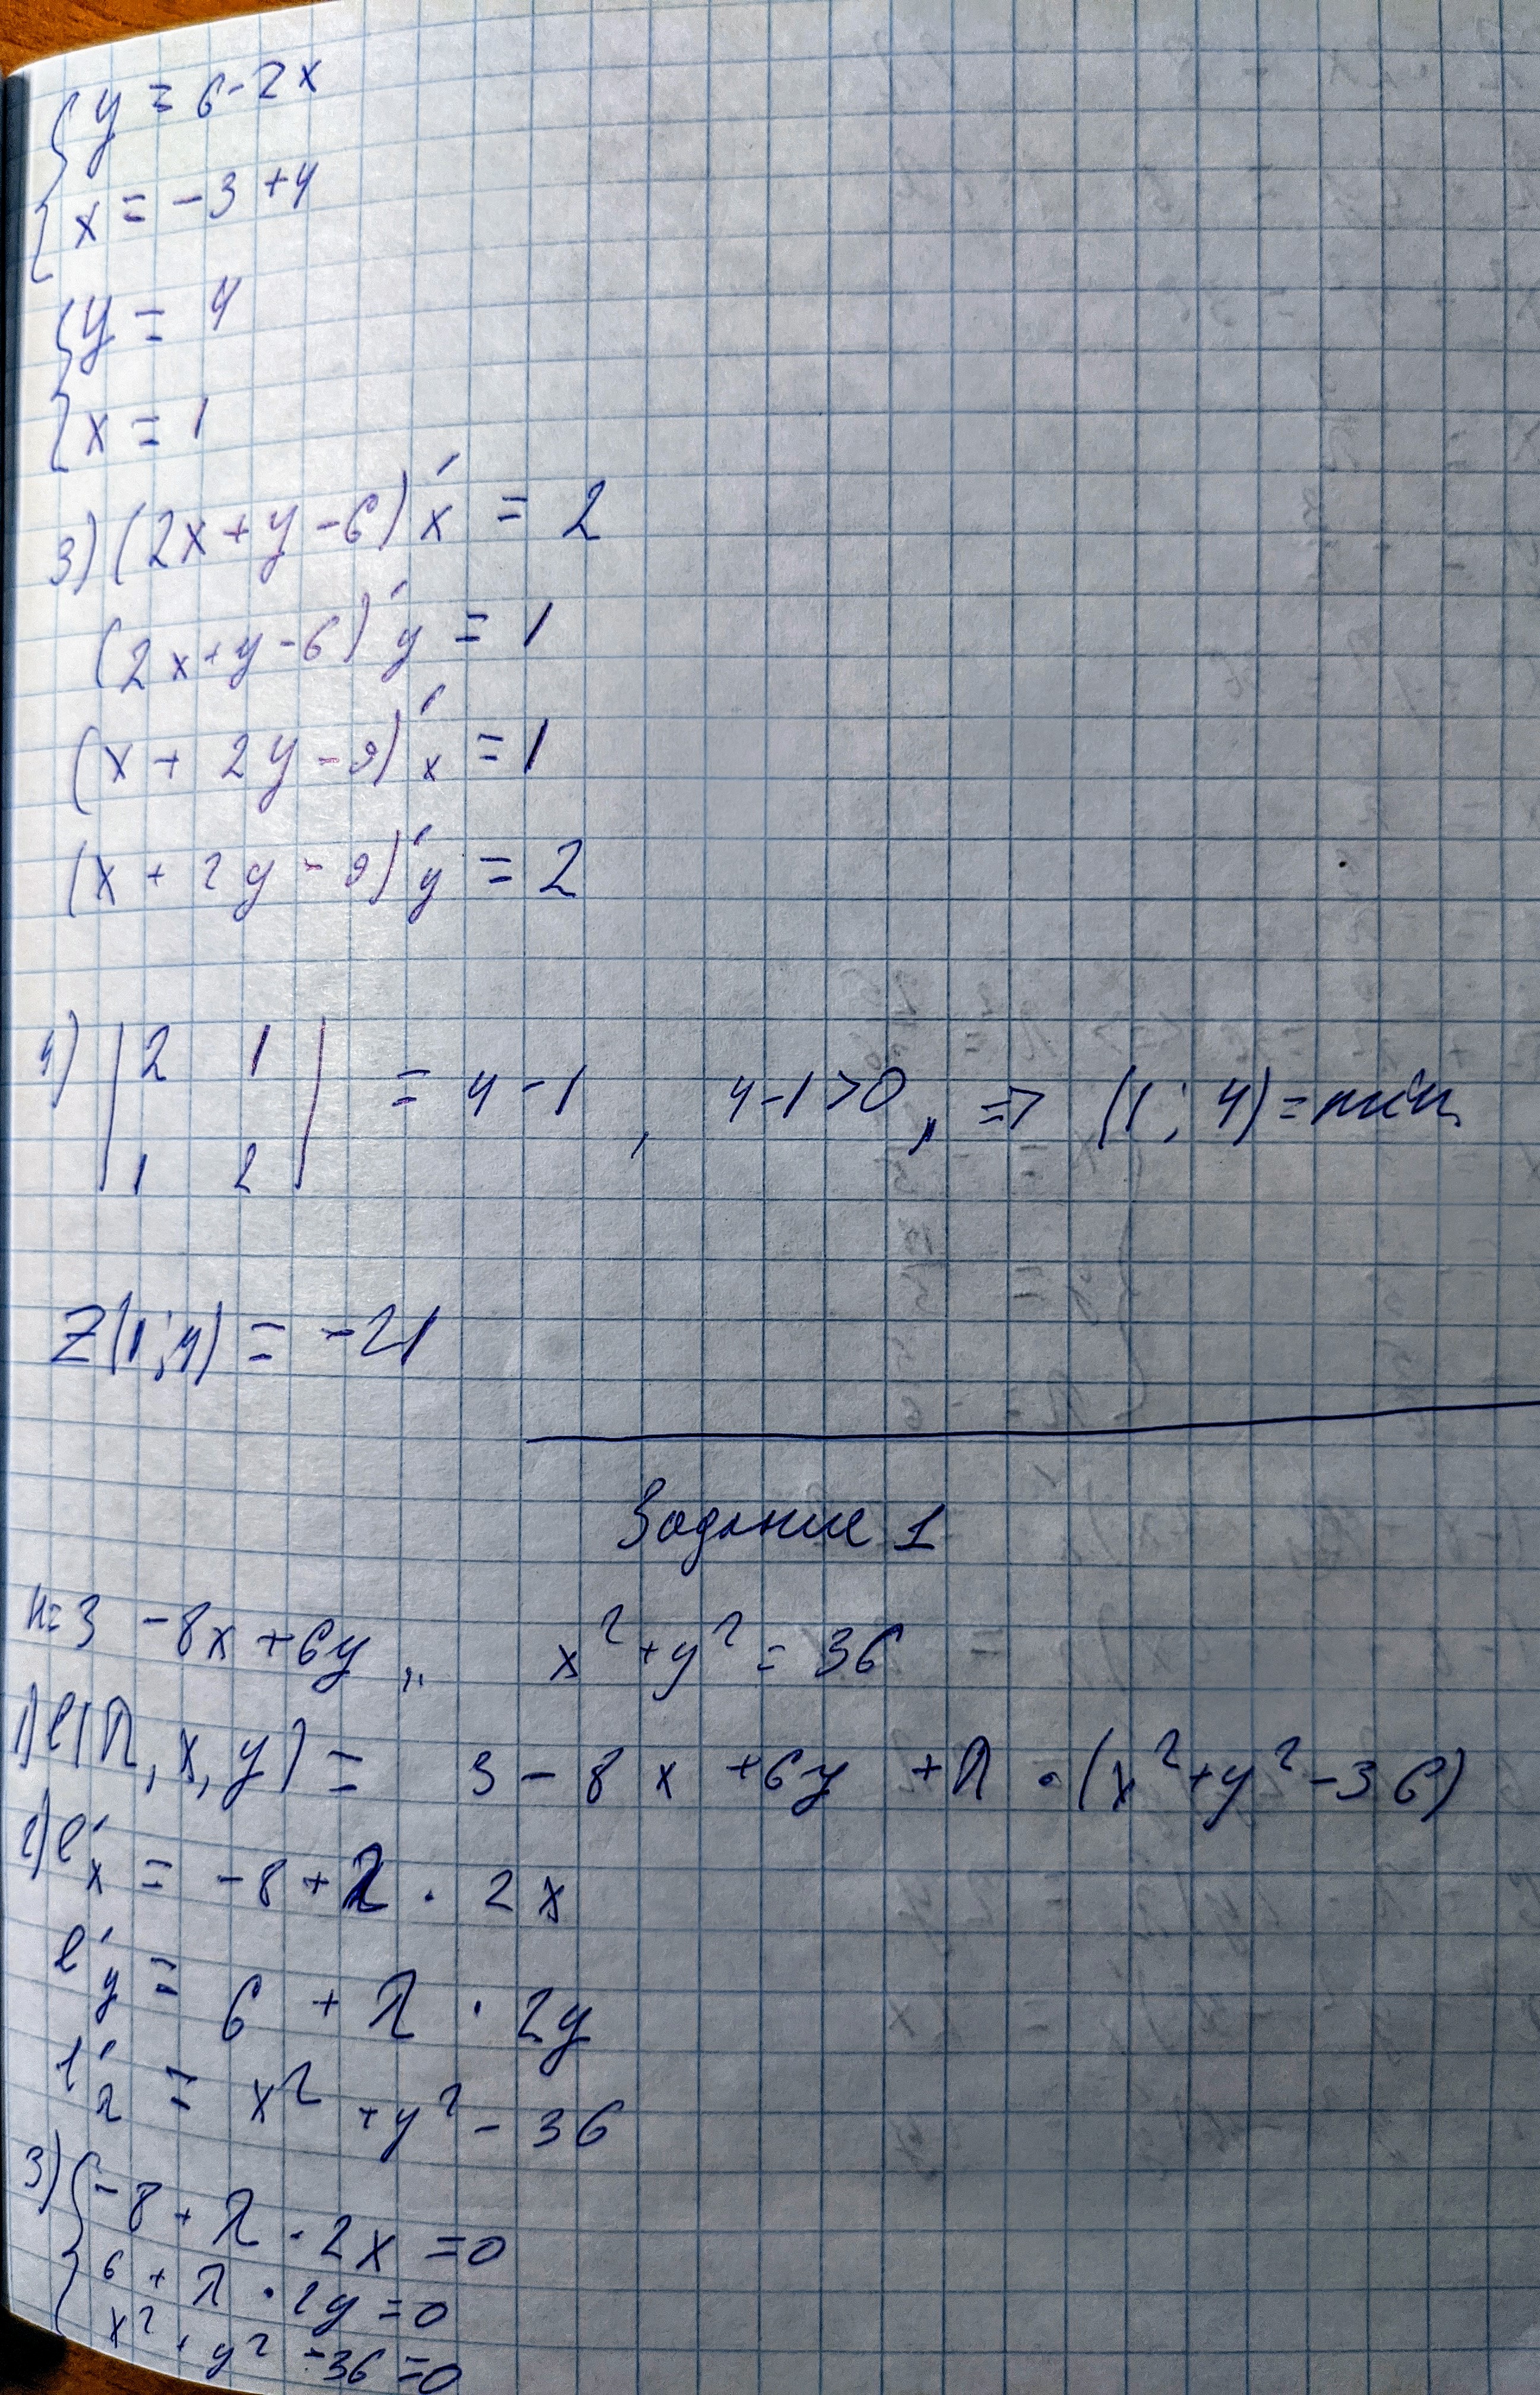 { y = 6-2x
{ x = -3+4
{ y = 4
{ x = 1
3) (2x+y-6)'x = 2
(2x+y-6)'y = 1
(x+2y-9)'x = 1
(x+2y-9)'y = 2
4) |2 1| = 4-1, 4-1>0, => (1; 4) = min
|1 2|
Z(1;4) = -21
Задание 1
u=3 -8x+6y,, x²+y²=36
1) l(λ, x, y) = 3-8x+6y+λ·(x²+y²-36)
2) l'x = -8+λ·2x
l'y = 6+λ·2y
l'λ = x²+y²-36
3) { -8+λ·2x=0
6+λ·2y=0
x²+y²-36=0